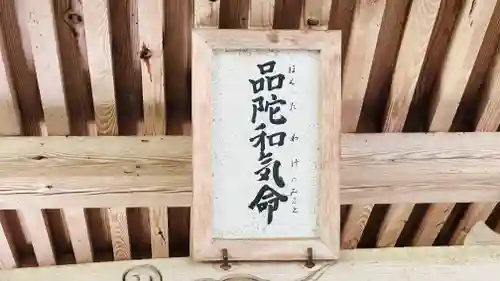 品陀和気命
ほんだわけのみこと